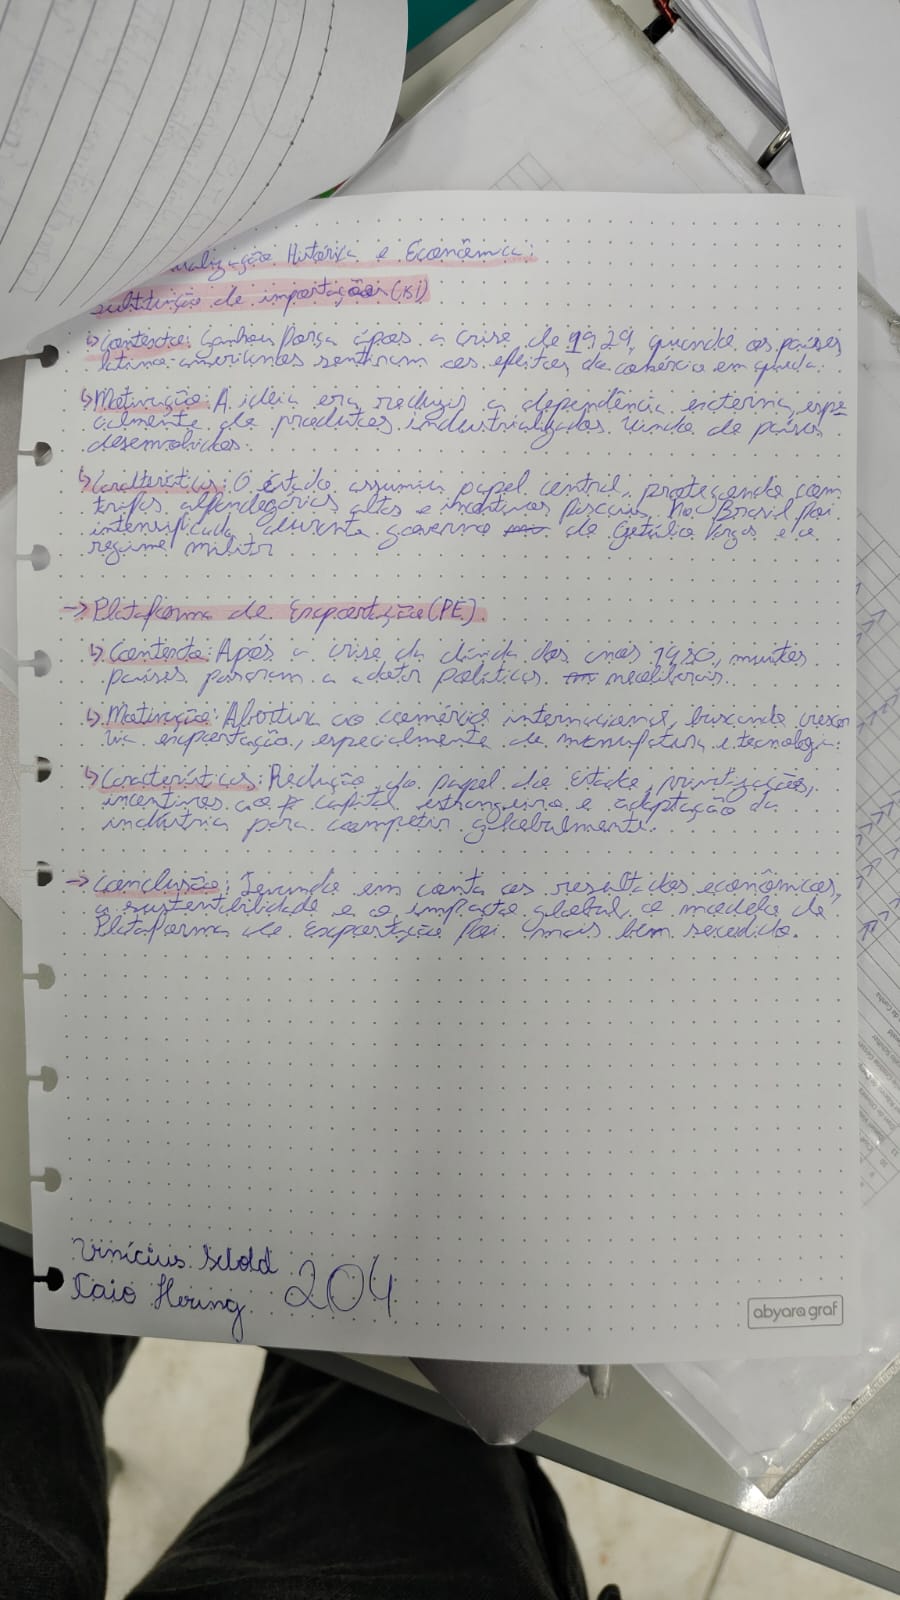 ualização Histórica e Econômica:
substituição de importações(KI)
↳Contexto: Ganhou força após a crise de 1929, quando os países
latino-americanos sentiram os efeitos do comércio em queda.
↳Motivação: A ideia era reduzir a dependência externa, espe-
cialmente de produtos industrializados vindo de países
desenvolvidos.
↳Características: O Estado assumiu papel central, protegendo com
tarifas alfandegárias altas e incentivos fiscais. No Brasil foi
intensificada durante governo de Getúlio Vargas e o
regime militr
→Plataforma de Exportação(PE).
↳Contexto: Após a crise da dívida dos anos 1980, muitos
países passaram a adotar políticas neoliberais.
↳Motivação: Abertura ao comércio internacional, buscando crescer
via exportação, especialmente de manufatura e tecnologia.
↳Características: Redução do papel do Estado, privatizações,
incentivos ao capital estrangeiro e adaptação da
indústria para competir globalmente.
→Conclusão: Levando em conta os resultados econômicos,
a sustentabilidade e o impacto global, o modelo de
Plataforma de Exportação foi mais bem sucedido.
Vinícius
Caio Hering 204
abyara graf